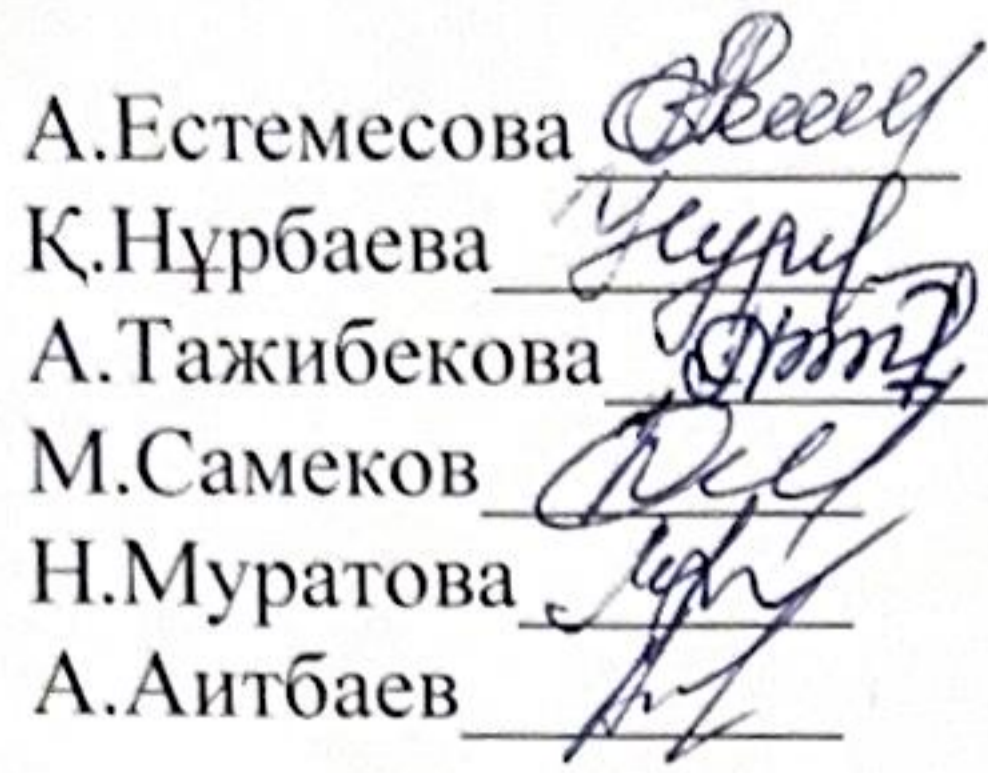 А.Естемесова
Қ.Нұрбаева
А.Тажибекова
М.Самеков
Н.Муратова
А.Аитбаев